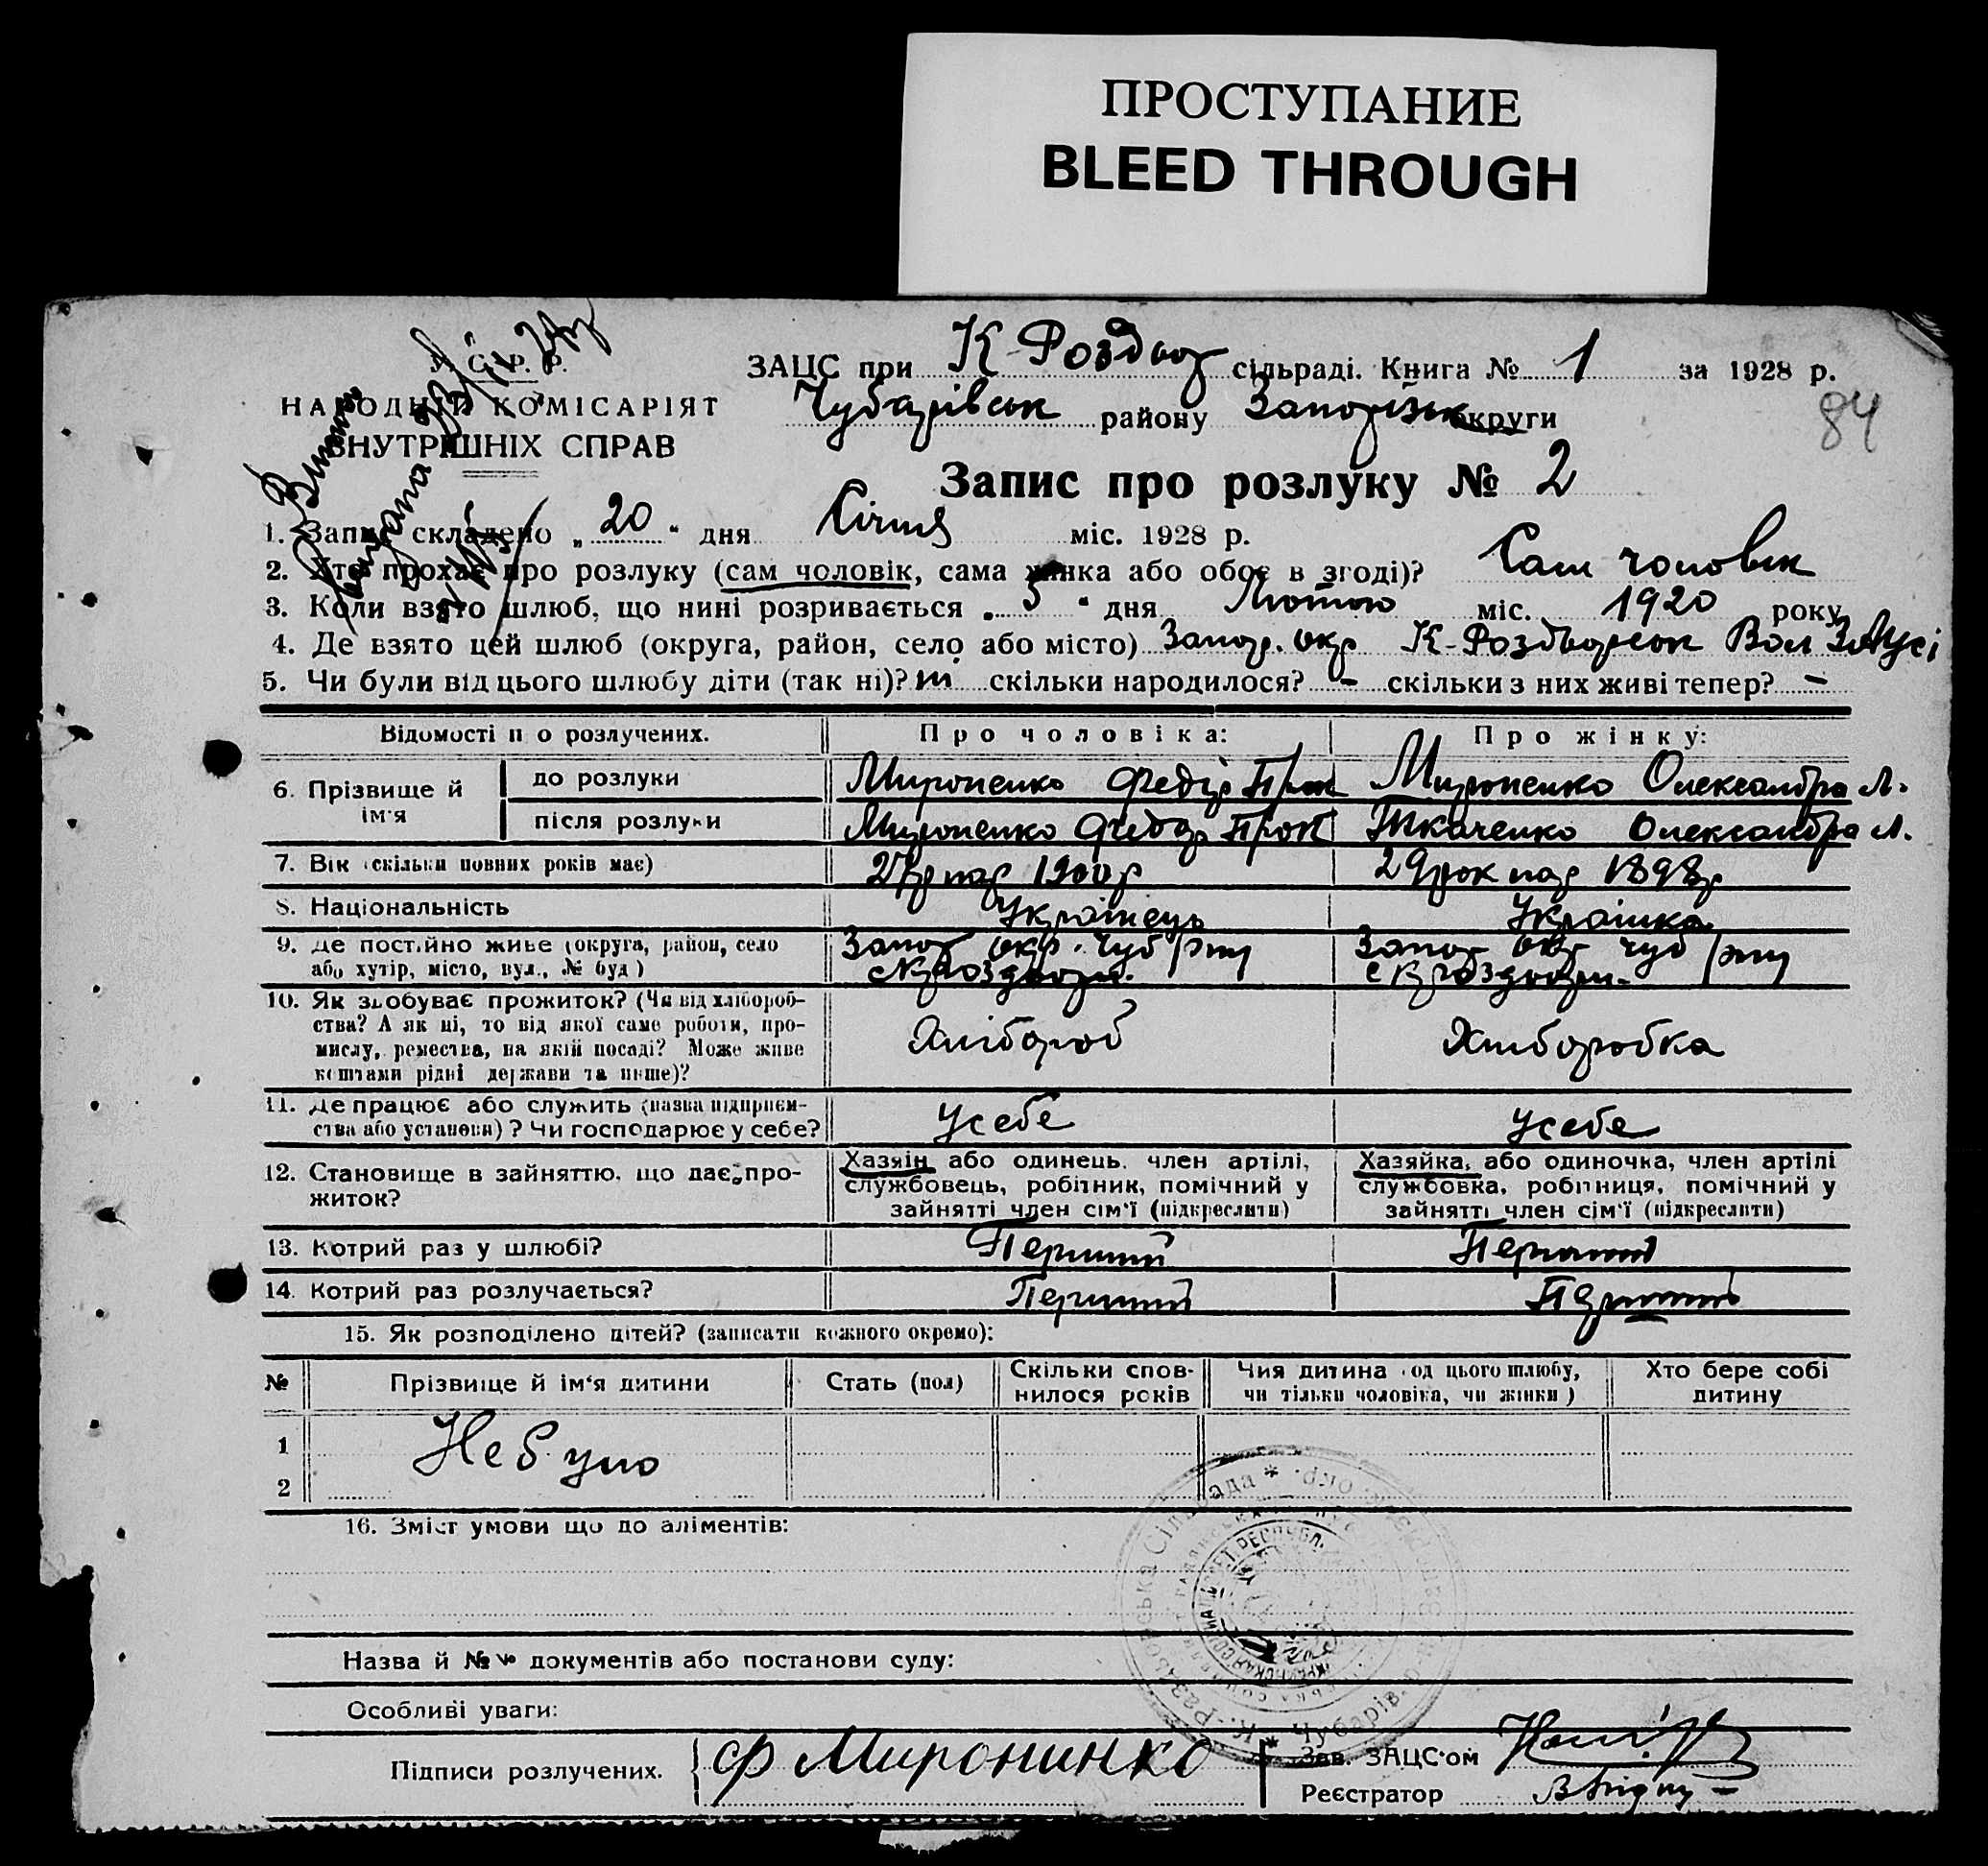 ПРОСТУПАНИЕ
BLEED THROUGH
У. С. Р. Р.
НАРОДНІЙ КОМІСАРІЯТ
ВНУТРІШНІХ СПРАВ
ЗАЦС при К-Роздор сільраді. Книга № 1 за 1928 р.
Чубарівськ району Запорізьк округи
84
Запис про розлуку № 2
1. Запис складено „ 20 “ дня Січня міс. 1928 р.
2. Хто прохає про розлуку (сам чоловік, сама жінка або обоє в згоді)? Сам чоловік
3. Коли взято шлюб, що нині розривається „ 5 “ дня Лютого міс. 1920 року
4. Де взято цей шлюб (округа, район, село або місто) Запор. окр К-Роздорськ Вол
5. Чи були від цього шлюбу діти (так ні)? ні скільки народилося? - скільки з них живі тепер? -
Відомості п о розлучених. Про чоловіка: Про жінку:
6. Прізвище й ім'я
до розлуки Мироненко Федір Прок Мироненко Олександра Л.
після розлуки Мироненко Федор Прок Ткаченко Олександра Л.
7. Вік (скільки повних років має) 27 р нар 1900 р 29 рок нар 1898 р
8. Національність Українець Українка
9. Де постійно живе (округа, район, село
або хутір, місто, вул., № буд) Запор окр. Чуб р-ну Запор окр Чуб р-ну
10. Як здобуває прожиток? (Чи від хлібороб-
ства? А як ні, то від якої саме роботи, про-
мислу, ремества, на якій посаді? Може живе
коштами рідні держави та инше)? Хлібороб Хліборобка
11. Де працює або служить (назва підприєм-
ства або установи)? Чи господарює у себе? Усебе Усебе
12. Становище в зайняттю, що дає про-
житок?
Хазяїн або одинець, член артілі,
службовець, робітник, помічний у
зайнятті член сім'ї (підкреслити)
Хазяйка, або одиночка, член артілі
службовка, робітниця, помічний у
зайнятті член сім'ї (підкреслити)
13. Котрий раз у шлюбі? Перший Перший
14. Котрий раз розлучається? Перший Перший
15. Як розподілено дітей? (записати кожного окремо):
№ Прізвище й ім'я дитини Стать (пол) Скільки спов-
нилося років Чия дитина (од цього шлюбу,
чи тільки чоловіка, чи жінки) Хто бере собі
дитину
1 Не було
2
16. Зміст умови що до аліментів:
Назва й №№ документів або постанови суду:
Особливі уваги:
Підписи розлучених. Ф Миронинко
Зав. ЗАЦС'ом
Реєстратор